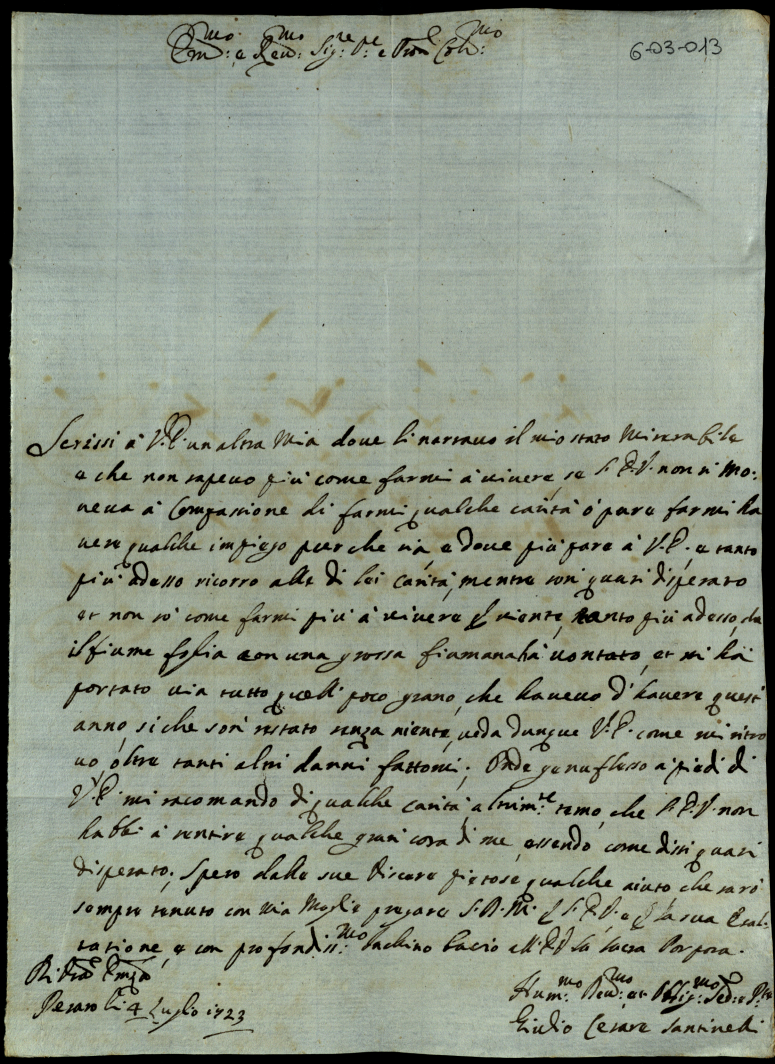 Em:mo e Rev:mo Sig:re P:re e Pron Col:mo
6-03-013
Scrissi à V.E. un altra Mia dove li narravo il mio stato Miserabile
e che non sapevo più come farmi à vivere, se l'E.V. non si mo:
veva à Compassione di farmi qualche carità ò pure farmi ha
vere qualche impiego purche sia e dove più pare à V.E. e tanto
più adesso ricorro alla di lei carità, mentre son quasi disperato
et non sò come farmi più à vivere p niente, tanto più adesso, che
il fiume foglia con una grossa fiumana hà vontato, et mi hà
portato via tutto quelli poco grano, che havevo d'havere quest
anno, si che son restato senza niente, veda dunque V.E. come mi ritro
vo, oltre tanti altri danni fattomi; Onde genuflesso a piedi di
V.E. mi racomando di qualche carità, altrim:te temo, che l'E.V. non
habbi à sentire qualche gran cosa di me, essendo come dissi quasi
disperato. Spero dalle sue viscere pietose qualche aiuto che sarò
sempre tenuto con mia Moglie pregare S.D.M. p l'E.V. e p la sua Esal:
tatione, e con profondiss:mo Inchino bacio all'E.V. la sacra Porpora.
Di V:ra Em:za
Pesaro li 4 Luglio 1723
Hum:mo Dev:mo et Oblig:mo Ser:
Giulio Cesare Santinelli